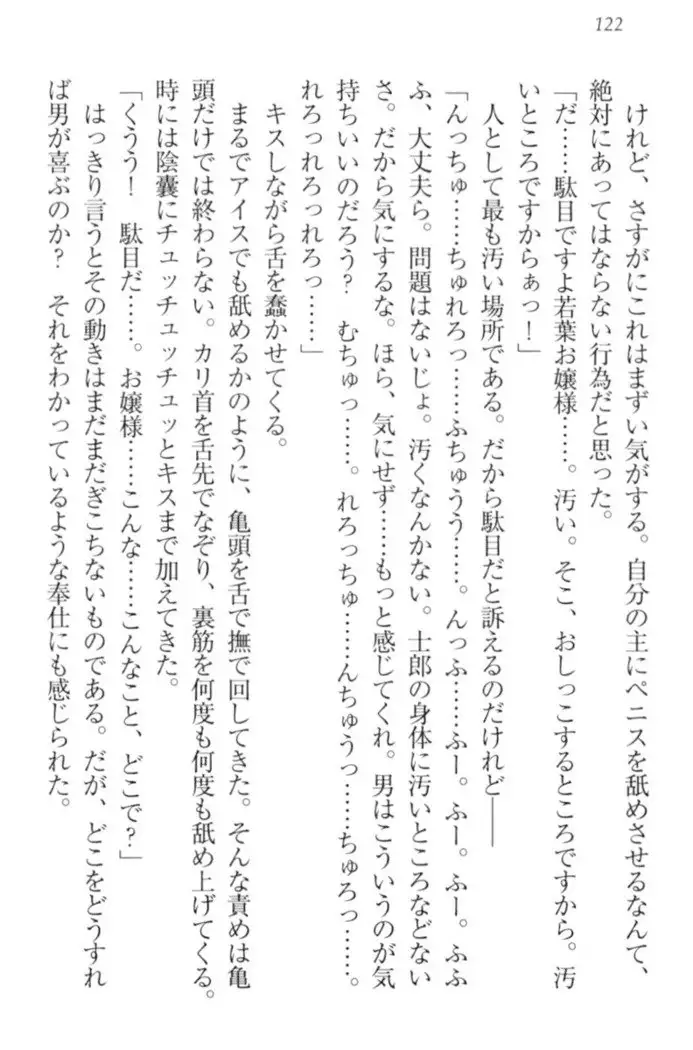 122
けれど、さすがにこれはまずい気がする。自分の主にペニスを舐めさせるなんて、
絶対にあってはならない行為だと思った。
「だ……駄目ですよ若葉お嬢様……。汚い。そこ、おしっこするところですから。汚
いところですからぁっ！」
人として最も汚い場所である。だから駄目だと訴えるのだけれど――
「んっちゅ……ちゅれろっ……ふちゅうう……。んっふ……ふー。ふー。ふふ
ふ、大丈夫ら。問題はないじょ。汚くなんかない。士郎の身体に汚いところなどない
さ。だから気にするな。ほら、気にせず……もっと感じてくれ。男はこういうのが気
持ちいいのだろう？　むちゅっ……。れろっちゅ……んちゅうっ……ちゅろっ……。
れろっれろっれろっ……」
キスしながら舌を蠢かせてくる。
まるでアイスでも舐めるかのように、亀頭を舌で撫で回してきた。そんな責めは亀
頭だけでは終わらない。カリ首を舌先でなぞり、裏筋を何度も何度も舐め上げてくる。
時には陰嚢にチュッチュッチュッとキスまで加えてきた。
「くうう！　駄目だ……。お嬢様……こんな……こんなこと、どこで？」
はっきり言うとその動きはまだまだぎこちないものである。だが、どこをどうすれ
ば男が喜ぶのか？　それをわかっているような奉仕にも感じられた。